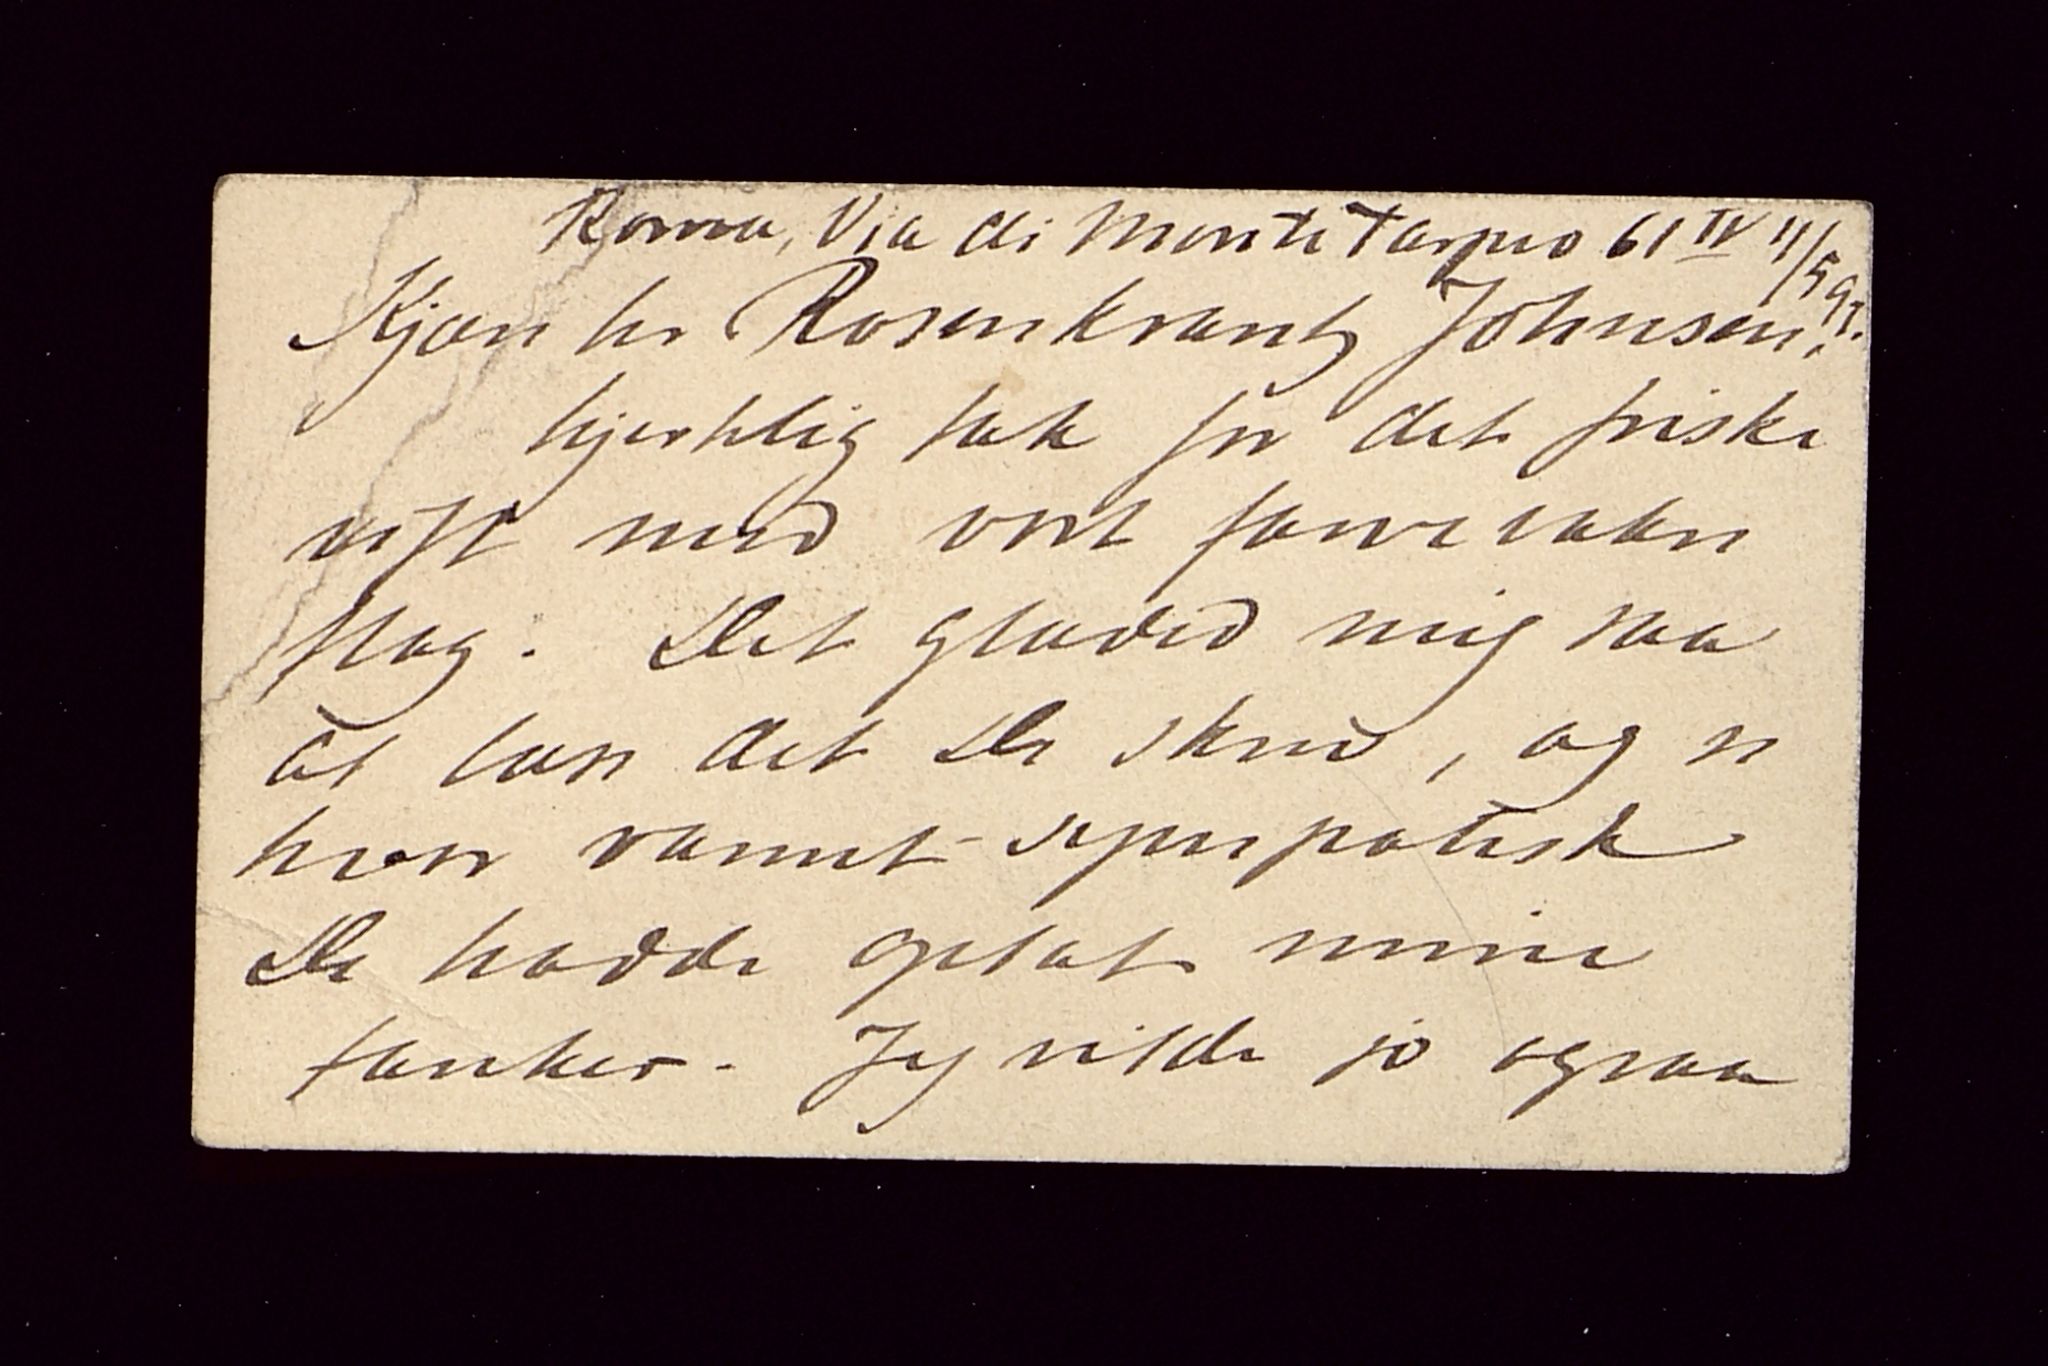 Roma, Via di Monte Tarpeo 61 IV 11/5 97.
Kjære hr Rosenkrantz Johnsen,
hjertelig tak for det friske
rift med vort farveløse
flag. Det glæded mig saa
at læse det De skrev, og se
hvor varmt-sympatisk
De hadde optat mine
tanker. Jeg vilde jo ogsaa